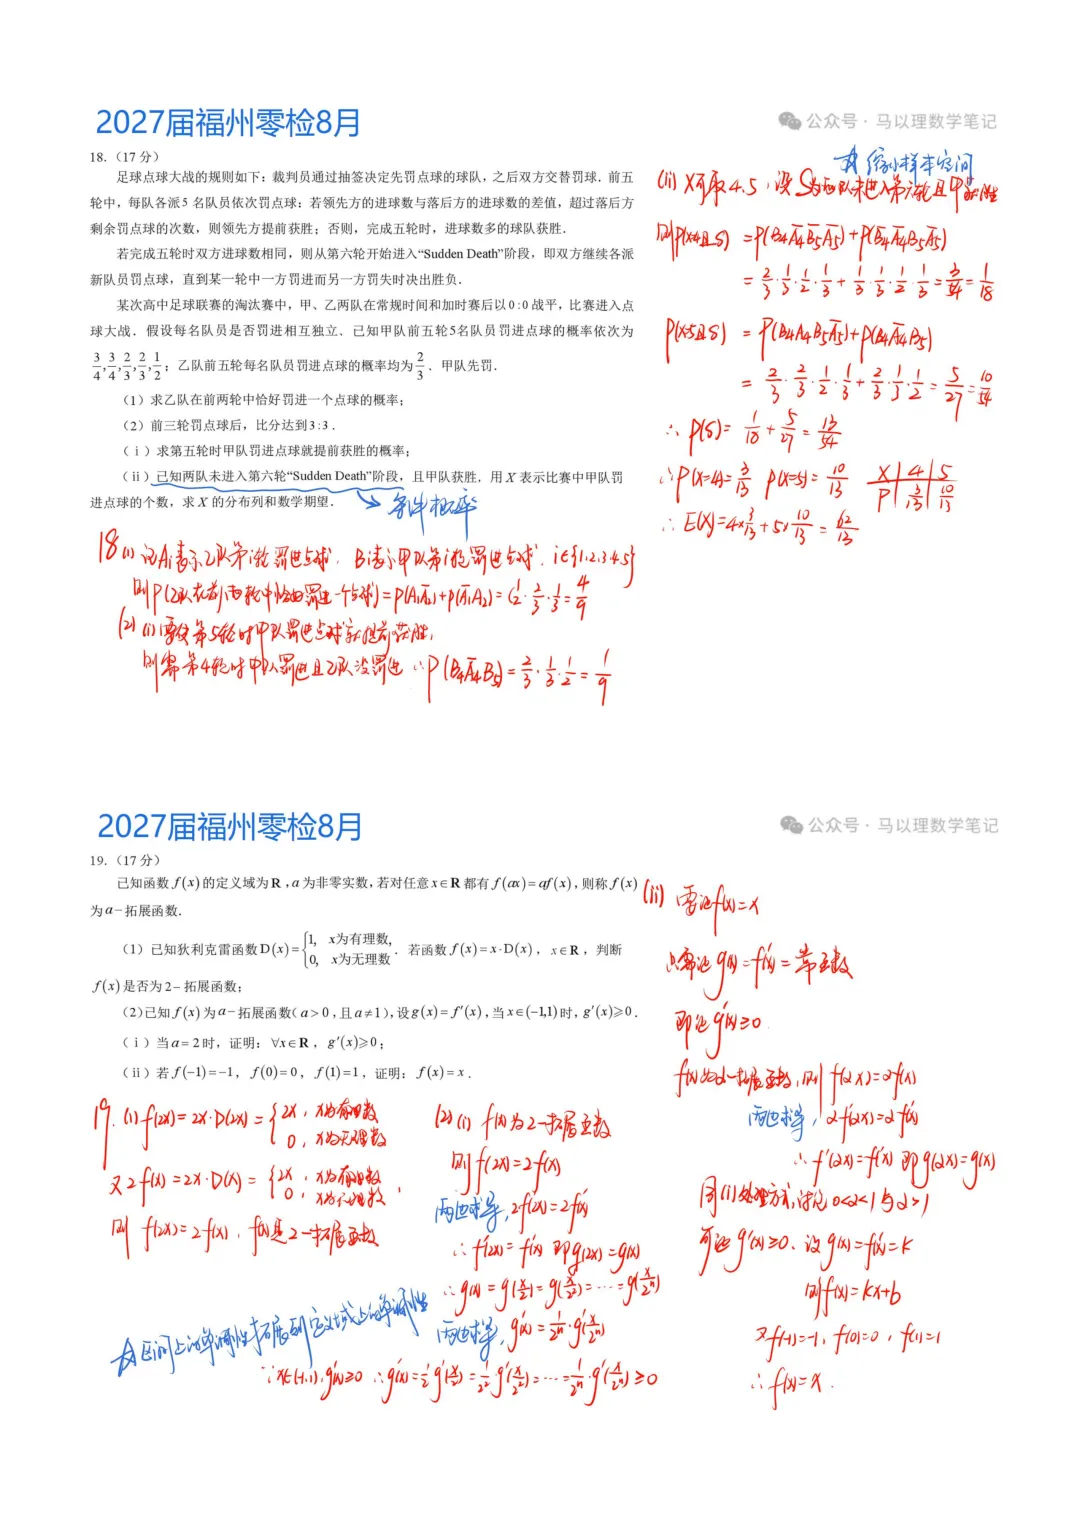 2027届福州零检8月
公众号·马以理数学笔记
18.（17分）
足球点球大战的规则如下：裁判员通过抽签决定先罚点球的球队，之后双方交替罚球．前五
轮中，每队各派5名队员依次罚点球：若领先方的进球数与落后方的进球数的差值，超过落后方
剩余罚点球的次数，则领先方提前获胜；否则，完成五轮时，进球数多的球队获胜．
若完成五轮时双方进球数相同，则从第六轮开始进入“Sudden Death”阶段，即双方继续各派
新队员罚点球，直到某一轮中一方罚进而另一方罚失时决出胜负．
某次高中足球联赛的淘汰赛中，甲、乙两队在常规时间和加时赛后以0:0战平，比赛进入点
球大战．假设每名队员是否罚进相互独立．已知甲队前五轮5名队员罚进点球的概率依次为
3/4, 3/4, 2/3, 2/3, 1/2；乙队前五轮每名队员罚进点球的概率均为2/3．甲队先罚．
（1）求乙队在前两轮中恰好罚进一个点球的概率；
（2）前三轮罚点球后，比分达到3:3．
（ⅰ）求第五轮时甲队罚进点球就提前获胜的概率；
（ⅱ）已知两队未进入第六轮“Sudden Death”阶段，且甲队获胜．用X表示比赛中甲队罚
进点球的个数，求X的分布列和数学期望．
条件概率
18 (1) 记Ai表示乙队第i轮罚进点球，Bi表示甲队第i轮罚进点球，i∈{1,2,3,4,5}
则P(乙队在前两轮中恰好罚进一个点球)=P(A₁A̅₂)+P(A̅₁A₂)=C₂¹·2/3·1/3=4/9
(2) (i) 要使第5轮时甲队罚进点球就提前获胜，
则需第4轮时甲队罚进且乙队没罚进 ∴P(B₄A̅₄B₅)=2/3·1/3·1/2=1/9
缩小样本空间
(ii) X可取4.5，设S为两队未进入第六轮且甲获胜
则P(X=4且S) =P(B₄A̅₄B̅₅A̅₅)+P(B̅₄A̅₄B₅A̅₅)
=2/3·1/3·1/2·1/3+1/3·1/3·1/2·1/3=3/54=1/18
P(X=5且S) =P(B₄A₄B₅A̅₅)+P(B₄A̅₄B₅)
=2/3·2/3·1/2·1/3+2/3·1/3·1/2=5/27=10/54
∴P(S)=1/18+5/27=13/54
∴P(X=4)=3/13 P(X=5)=10/13 X 4 5
P 3/13 10/13
∴E(X)=4×3/13+5×10/13=62/13
2027届福州零检8月
公众号·马以理数学笔记
19.（17分）
已知函数f(x)的定义域为R，a为非零实数，若对任意x∈R都有f(ax)=af(x)，则称f(x)
为a－拓展函数．
（1）已知狄利克雷函数D(x)={1, x为有理数, 0, x为无理数．若函数f(x)=x·D(x)，x∈R，判断
f(x)是否为2－拓展函数；
（2）已知f(x)为a－拓展函数（a>0，且a≠1），设g(x)=f′(x)，当x∈(-1,1)时，g′(x)⩾0．
（ⅰ）当a=2时，证明：∀x∈R，g′(x)⩾0；
（ⅱ）若f(-1)=-1，f(0)=0，f(1)=1，证明：f(x)=x．
19. (1) f(2x)=2x·D(2x)={2x, x为有理数
0, x为无理数
又2f(x)=2x·D(x)={2x, x为有理数
0, x为无理数，
则 f(2x)=2f(x)，f(x)是2－拓展函数
区间上的单调性拓展到定义域上的单调性
(2) (i) f(x)为2－拓展函数
则f(2x)=2f(x)
两边求导，2f′(2x)=2f′(x)
∴f′(2x)=f′(x) 即g(2x)=g(x)
∴g(x)=g(x/2)=g(x/2²)=……=g(x/2ⁿ)
两边求导，g′(x)=1/2ⁿ·g′(x/2ⁿ)
∵x∈(-1,1), g′(x)≥0 ∴g′(x)=1/2g′(x/2)=1/2²g′(x/2²)=……=1/2ⁿ·g′(x/2ⁿ)≥0
(ii) 要证f(x)=x
只需证g(x)=f′(x)=常函数
即证g′(x)≥0
f(x)为α－拓展函数，则f(αx)=αf(x)
两边求导，αf′(αx)=αf′(x)
∴f′(αx)=f′(x) 即g(αx)=g(x)
同(i)处理方式，讨论0<α<1与α>1
可证g′(x)≥0．设g(x)=f′(x)=k
则f(x)=kx+b
又f(-1)=-1，f(0)=0，f(1)=1
∴f(x)=x．